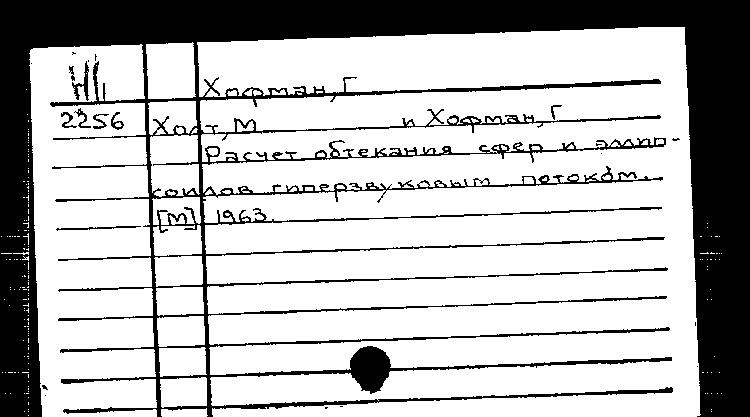 Хофман, Г
2256 Холт, М и Хофман, Г
Расчет обтекания сфер и эллип-
соидов гиперзвуковым потоком.
[М] 1963.